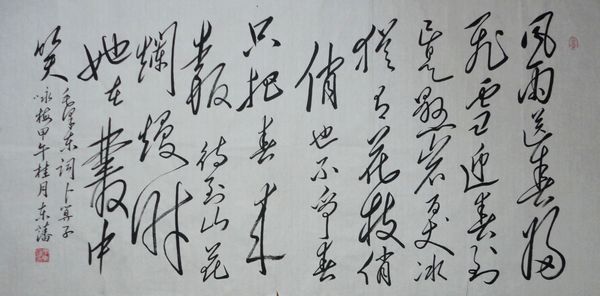 风雨送春归
飞雪迎春到
已是懸崖百丈冰
犹有花枝俏
俏也不争春
只把春来
報待到山花
爛熳时
她在叢中
笑
毛泽东词卜算子
咏梅甲午桂月东藩